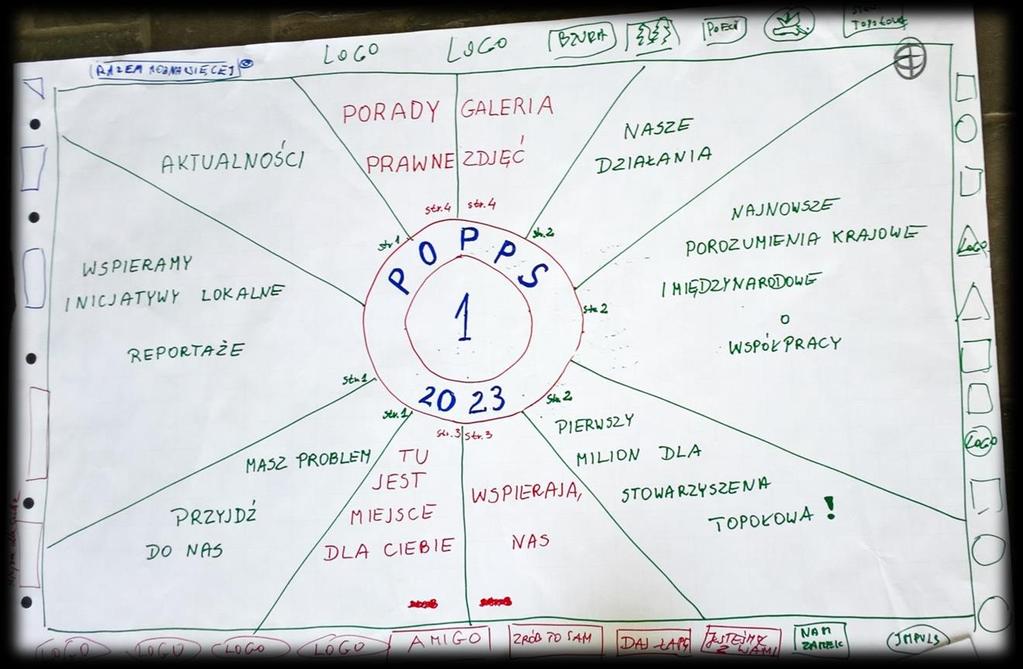 RAZEM MOŻNA WIĘCEJ
LOGO
LOGO
BZURA
POECI
TOPOŁOWA
AKTUALNOŚCI
PORADY
PRAWNE
GALERIA
ZDJĘĆ
NASZE
DZIAŁANIA
str.4
str.4
str.1
str.2
NAJNOWSZE
POROZUMIENIA KRAJOWE
I MIĘDZYNARODOWE
O
WSPÓŁPRACY
LOGO
WSPIERAMY
INICJATYWY LOKALNE
REPORTAŻE
POPPS
1
2023
str.2
str.1
str.1
str.2
str.3
str.3
PIERWSZY
MILION DLA
STOWARZYSZENA
TOPOŁOWA!
LOGO
MASZ PROBLEM
PRZYJDŹ
DO NAS
TU
JEST
MIEJSCE
DLA CIEBIE
WSPIERAJĄ
NAS
LOGO
LOGO
LOGO
LOGO
AMIGO
ZRÓB TO SAM
DAJ ŁAPĘ
JESTEŚMY
Z WAMI
NAM
IMPULS